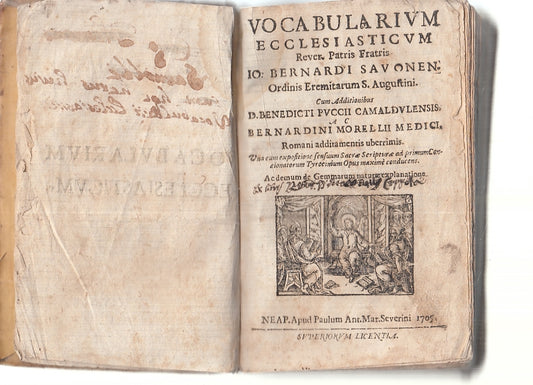 VOCABULARIVM
ECCLESIASTICVM
Rever. Patris Fratris
IO: BERNARDI SAVONEN:
Ordinis Eremitarum S. Augustini.
Cum Additionibus
D. BENEDICTI PVCCII CAMALDVLENSIS,
A C
BERNARDINI MORELLII MEDICI,
Romani additamentis uberrimis.
Vna cum expositione sensuum Sacræ Scripturæ ad primum Con-
cionatorum Tyrocinium Opus maximè conducens.
Ac demum de Gemmarum natura explanatione.
NEAP. Apud Paulum Ant. Mar. Severini 1705.
SVPERIORVM LICENTIA.